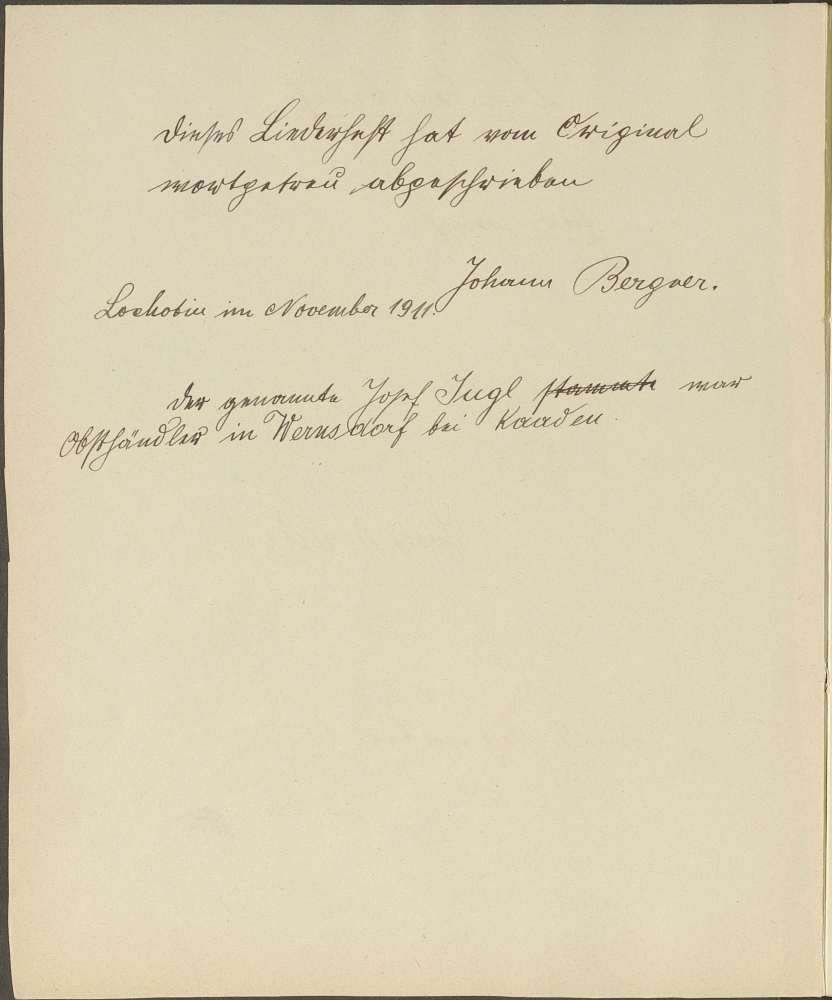 Dieses Liederheft hat vom Original
wortgetreu abgeschrieben
Johann Bergner.
im November 1911.
Der genannte Josef Ingl stammte war
Obsthändler in Wernsdorf bei Kaaden.